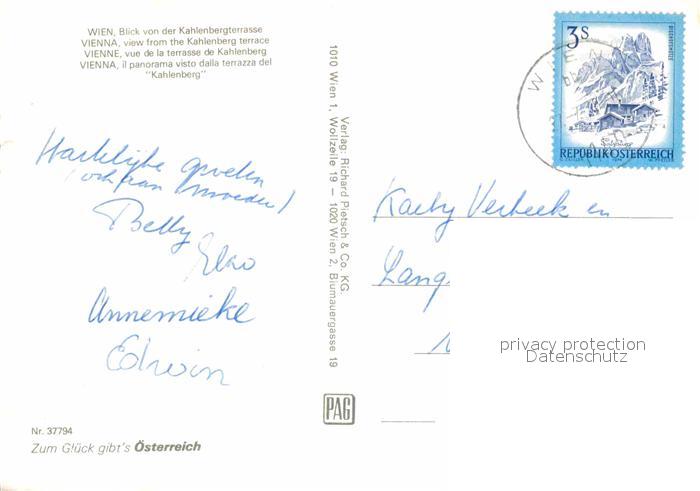 WIEN, Blick von der Kahlenbergterrasse
VIENNA, view from the Kahlenberg terrace
VIENNE, vue de la terrasse de Kahlenberg
VIENNA, il panorama visto dalla terrazza del
"Kahlenberg"
Hartelijke groeten
(ook van moeder)
Betty
Elso
Annemieke
Edwin
Nr. 37794
Zum Glück gibt's Österreich
Verlag: Richard Pietsch & Co. KG.
1010 Wien 1, Wollzeile 19 – 1020 Wien 2, Blumauergasse 19
PAG
3 S
REPUBLIK ÖSTERREICH
WIEN
Verbeek en
Lang
privacy protection
Datenschutz